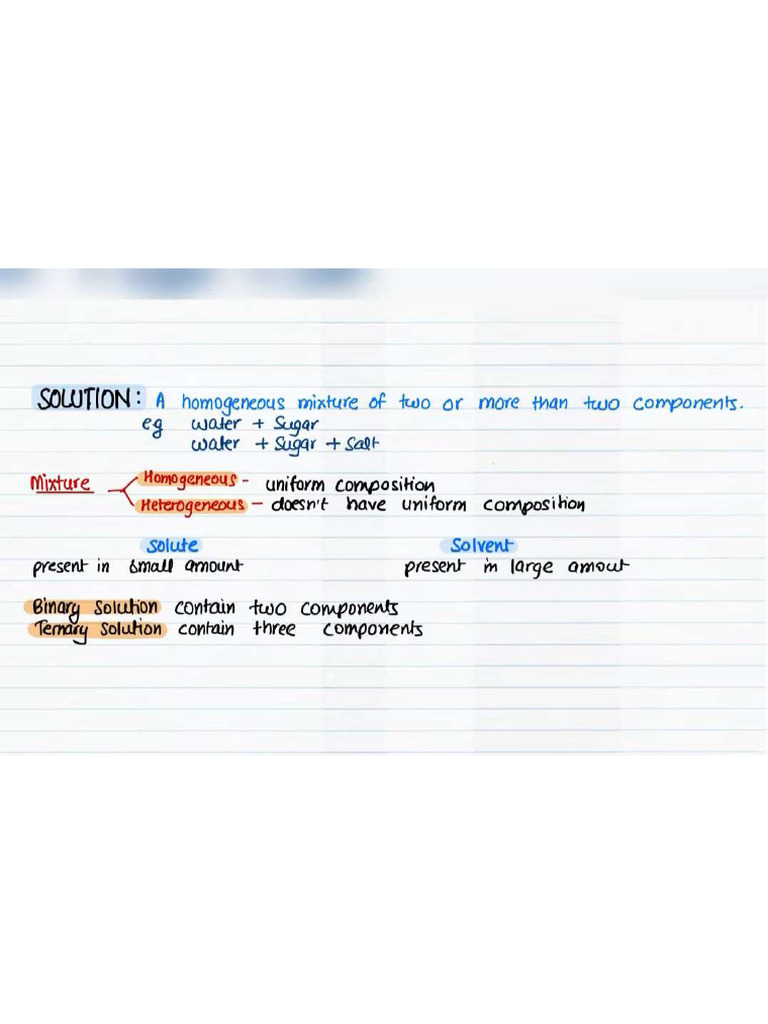 SOLUTION: A homogeneous mixture of two or more than two components.
eg water + Sugar
water + Sugar + Salt
Mixture Homogeneous - uniform composition
Heterogeneous - doesn't have uniform composition
Solute Solvent
present in small amount present in large amout
Binary Solution contain two components
Ternary Solution contain three components